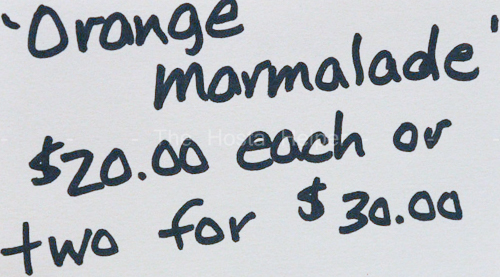 'Orange
marmalade'
- The Hosta Helper -
$20.00 each or
two for $30.00